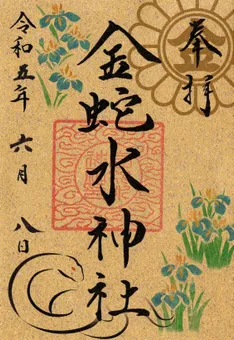 奉拝
金蛇水神社
令和五年 六月 八日